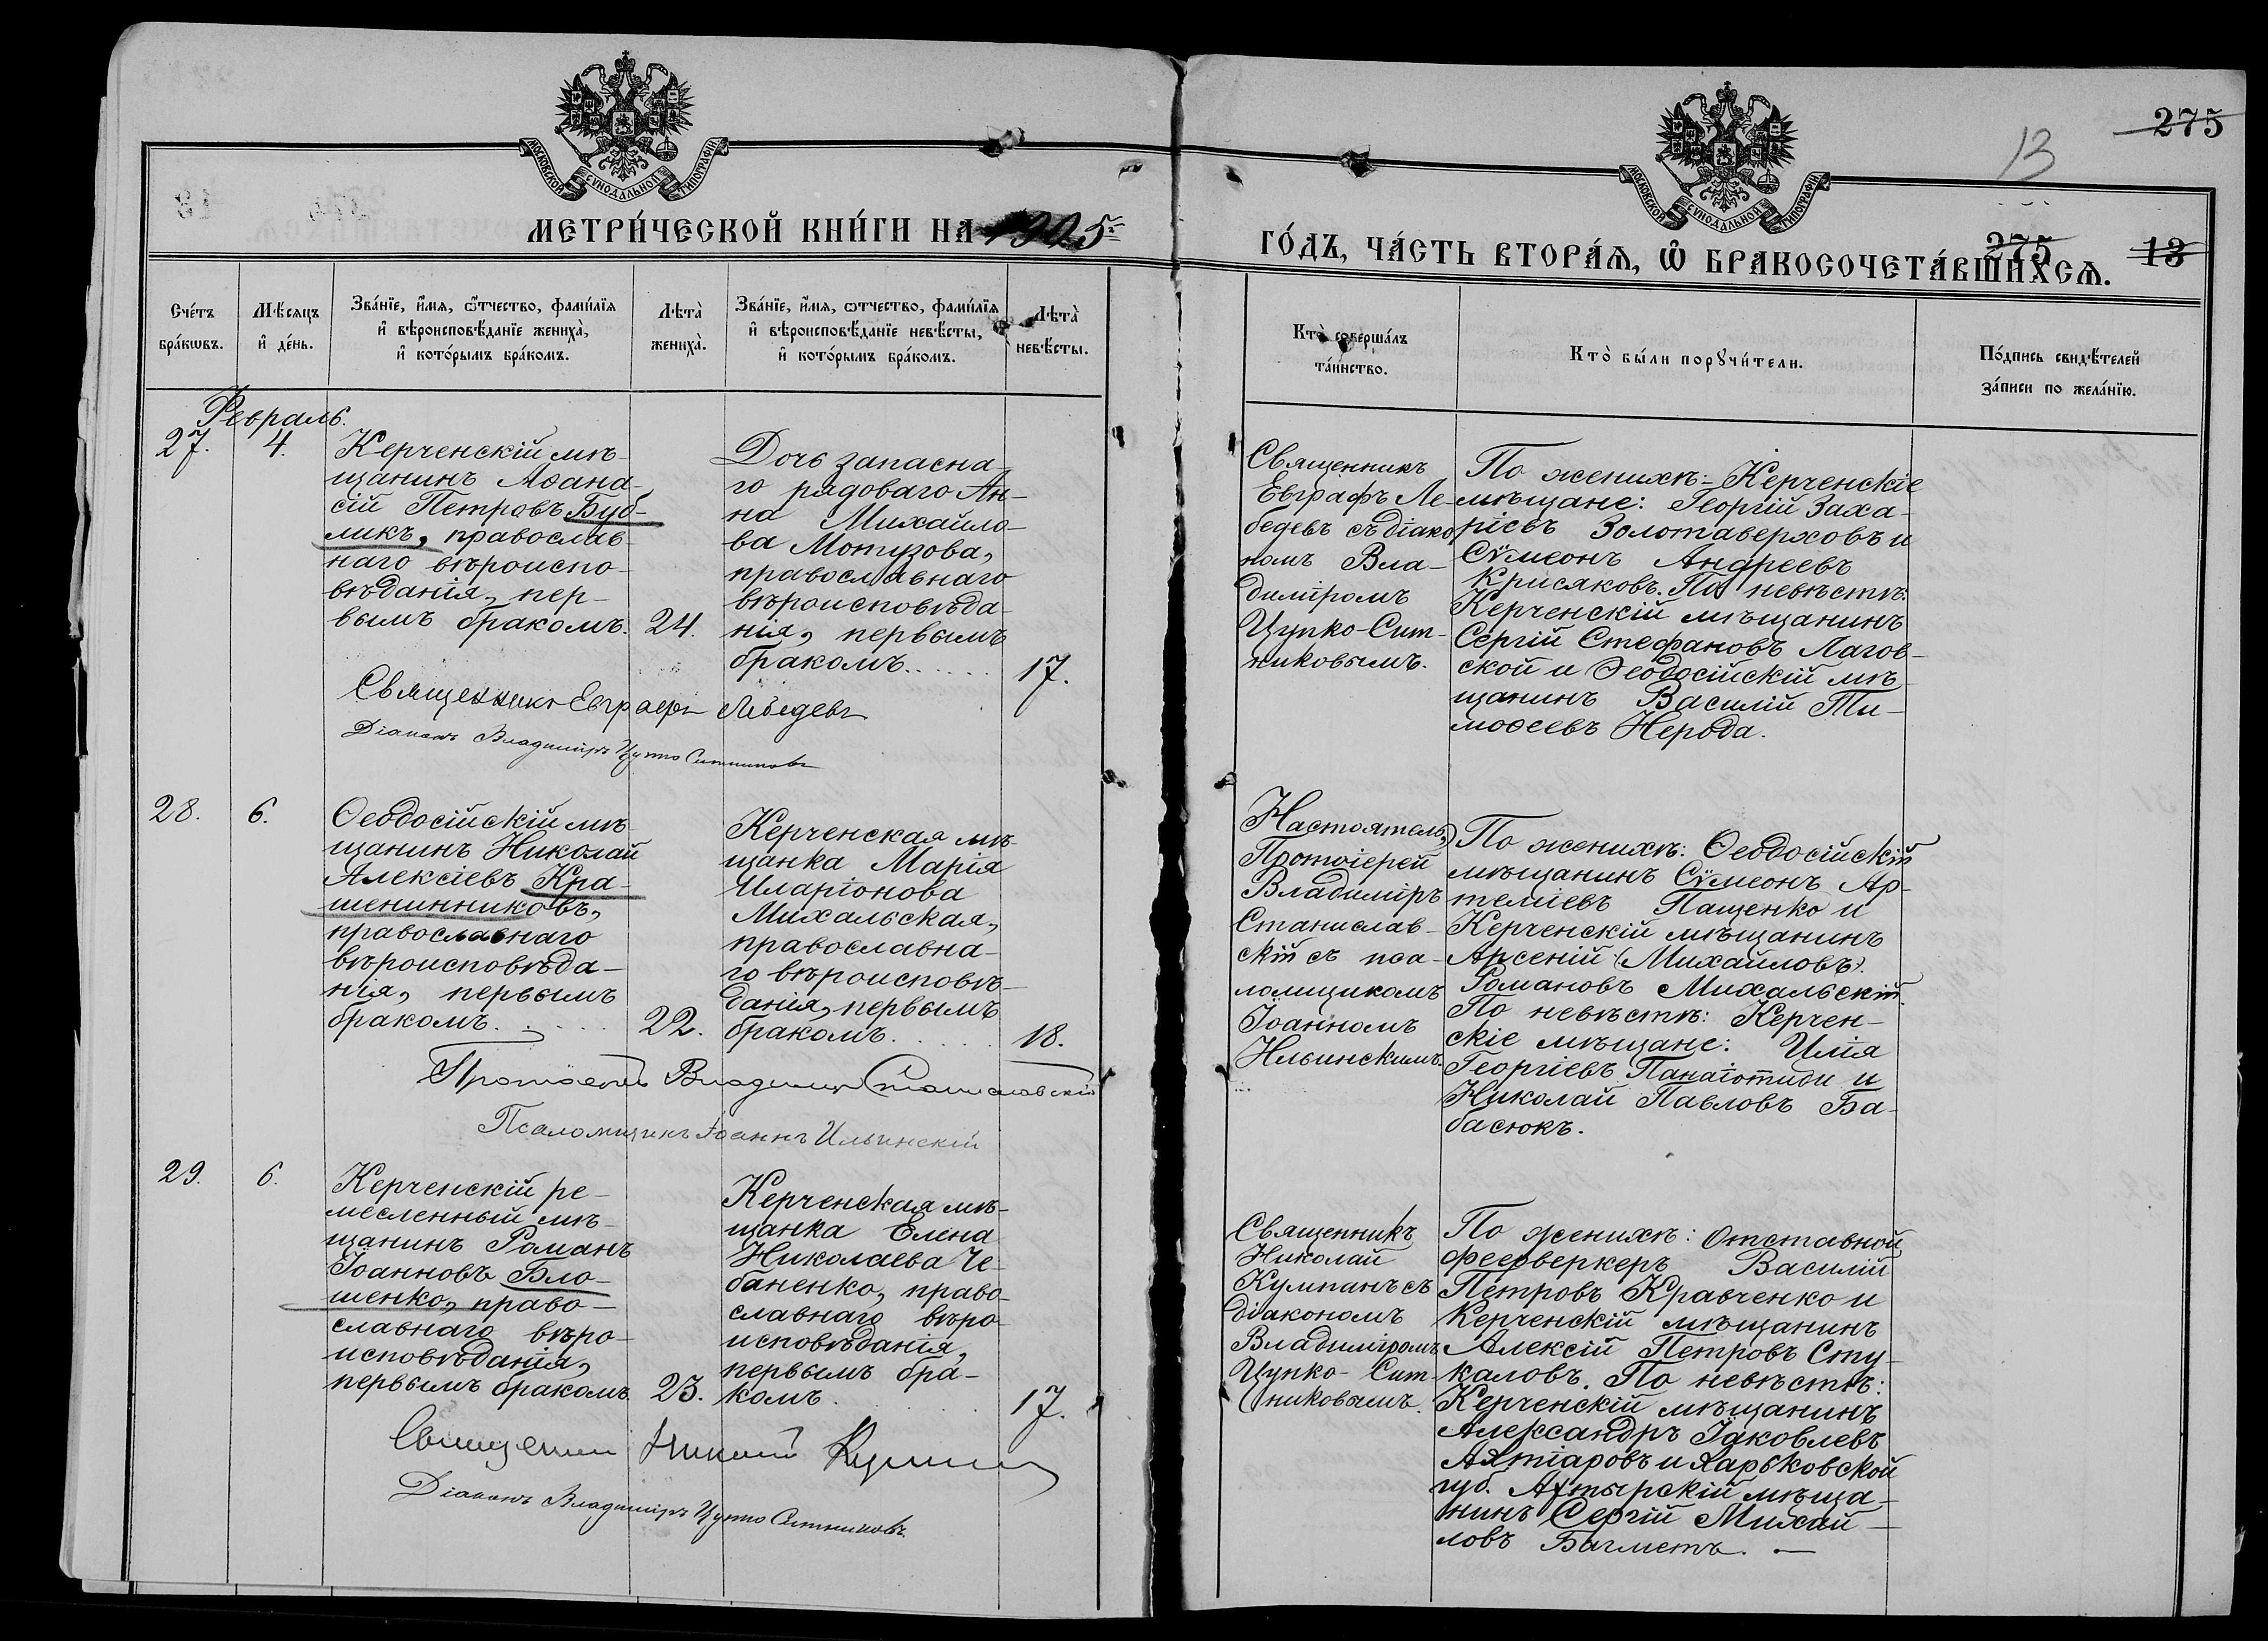 275
13
МОСКОВСКОЙ СѴНОДАЛЬНОЙ ТИПОГРАФІИ
МОСКОВСКОЙ СѴНОДАЛЬНОЙ ТИПОГРАФІИ
МЕТРИ́ЧЕСКОЙ КНИ́ГИ НА 1905
ГО́ДЪ, ЧА́СТЬ ВТОРА́Ѧ, Ѽ БРАКОСОЧЕТА́ВШИХСѦ.
275 13
Сче́тъ бра́кѡвъ.
Мѣ́сяцъ и҆ де́нь.
Зва́нїе, и҆́мя, ѻ҆́тчество, фами́лїя
и҆ вѣроисповѣ́данїе жениха̀,
и҆ кото́рымъ бра́комъ.
Лѣта̀ жениха̀.
Зва́нїе, и҆́мя, ѻтчество, фами́лїя
и҆ вѣроисповѣ́данїе невѣ́сты,
и҆ кото́рымъ бра́комъ.
Лѣта̀ невѣ́сты.
Кто̀ соверша́лъ
та́инство.
Кто̀ бы́ли порꙋчи́тели.
По́дпись свидѣ́телей
за́писи по жела́нїю.
Февраль.
27.
4.
Керченскій мѣ-
щанинъ Аѳана-
сій Петровъ Буб-
ликъ, православ-
наго вѣроиспо-
вѣданія, пер-
вымъ бракомъ.
24.
Дочь запасна-
го рядоваго Ан-
на Михайло-
ва Мотузова,
православнаго
вѣроисповѣда-
нія, первымъ
бракомъ......
17.
Священникъ
Евграфъ Ле-
бедевъ съ діако-
номъ Вла-
диміромъ
Цупко-Сит-
никовымъ.
По женихѣ: Керченскіе
мѣщане: Георгій Заха-
ріевъ Золотаверховъ и
Сѵмеонъ Андреевъ
Крисяковъ. По невѣстѣ:
Керченскій мѣщанинъ
Сергій Стефановъ Лагов-
ской и Ѳеодосійскій мѣ-
щанинъ Василій Ти-
моѳеевъ Нерода.
Священникъ Евграфъ Лебедевъ
Діаконъ Владиміръ Цупко Ситниковъ
28.
6.
Ѳеодосійскій мѣ-
щанинъ Николай
Алексіевъ Кра-
шенинниковъ,
православнаго
вѣроисповѣда-
нія, первымъ
бракомъ......
22.
Керченская мѣ-
щанка Марія
Иларіонова
Михальская,
православна-
го вѣроисповѣ-
данія, первымъ
бракомъ......
18.
Настоятель,
Протоіерей
Владиміръ
Станислав-
скій съ пса-
ломщикомъ
Іоанномъ
Ильинскимъ.
По женихѣ: Ѳеодосійскій
мѣщанинъ Сѵмеонъ Ар-
теміевъ Пащенко и
Керченскій мѣщанинъ
Арсеній (Михаиловъ).
Романовъ Михальскій.
По невѣстѣ: Керчен-
скіе мѣщане: Илія
Георгіевъ Панаіотиди и
Николай Павловъ Ба-
басюкъ.
Протоіерей Владиміръ Станиславскій
Псаломщикъ Іоаннъ Ильинскій
29.
6.
Керченскій ре-
месленный мѣ-
щанинъ Романъ
Іоанновъ Бло-
шенко, право-
славнаго вѣро-
исповѣданія,
первымъ бракомъ
23.
Керченская мѣ-
щанка Елена
Николаева Че-
баненко, право-
славнаго вѣро-
исповѣданія,
первымъ бра-
комъ.
17.
Священникъ
Николай
Кумпанъ съ
діакономъ
Владиміромъ
Цупко-Сит-
никовымъ.
По женихѣ: Отставной
феерверкеръ Василій
Петровъ Кравченко и
Керченскій мѣщанинъ
Алексій Петровъ Сту-
каловъ. По невѣстѣ:
Керченскій мѣщанинъ
Александръ Іаковлевъ
Ахтіаровъ и Харьковской
губ. Ахтырскій мѣща-
нинъ Сергій Михай-
ловъ Багметъ. —
Священникъ Николай Кумпанъ
Діаконъ Владиміръ Цупко Ситниковъ.